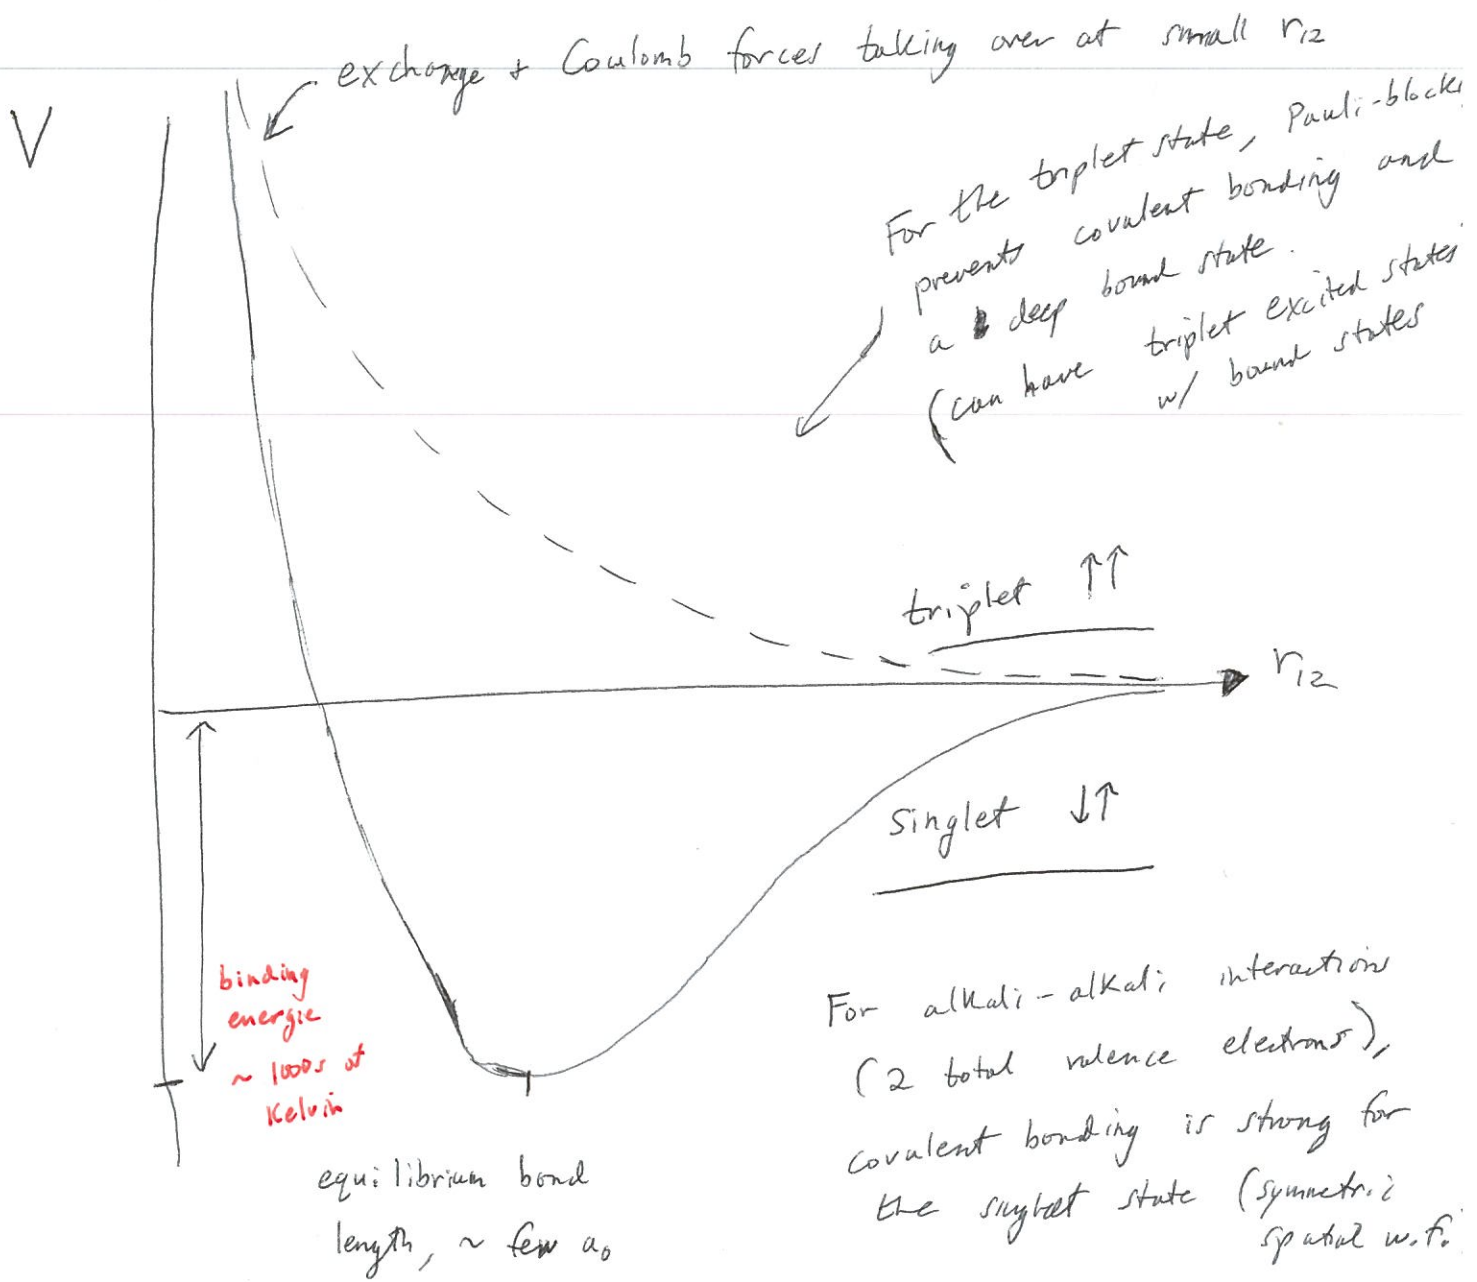 exchange + Coulomb forces taking over at small r₁₂
V
For the triplet state, Pauli-block
prevents covalent bonding and
a deep bound state.
(can have triplet excited states
w/ bound states
triplet ↑↑
r₁₂
singlet ↓↑
binding
energie
~ 1000s of
Kelvin
equilibrium bond
length, ~ few a₀
For alkali-alkali interactions
(2 total valence electrons),
covalent bonding is strong for
the singlet state (symmetric
spatial w.f.